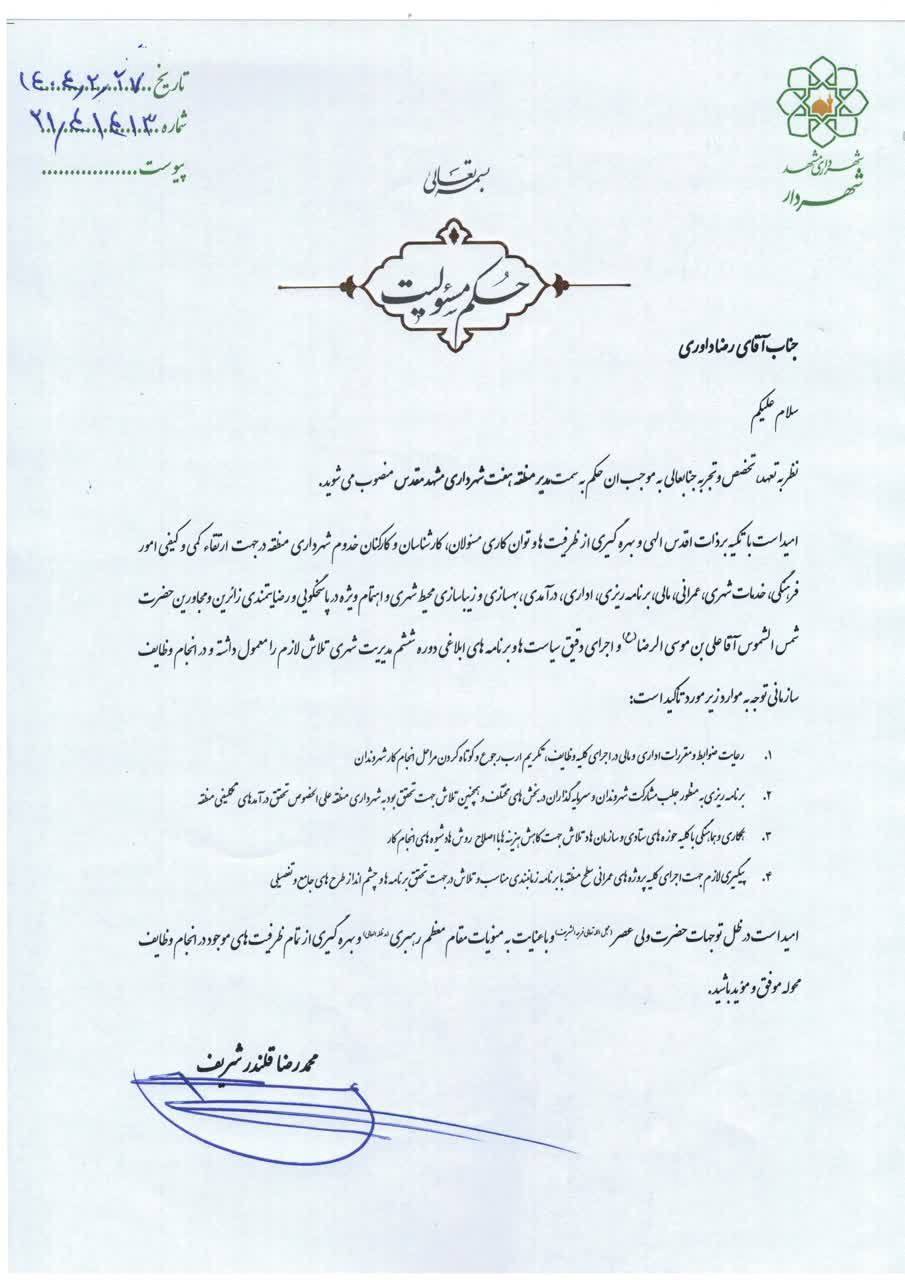 شهرداری مشهد
شهردار
تاریخ ۱۴۰۴٫۲٫۲۷
شماره ۲۱٫۴۱۴۱۳
پیوست
بسمه تعالی
حکم مسئولیت
جناب آقای رضا داوری
سلام علیکم
نظر به تعهد، تخصص و تجربه جنابعالی به موجب این حکم به سمت مدیر منطقه هفت شهرداری مشهد مقدس منصوب می شوید.
امید است با تکیه بر ذات اقدس الهی و بهره گیری از ظرفیت ها و توان کاری مسئولان، کارشناسان و کارکنان خدوم شهرداری منطقه در جهت ارتقاء کمی و کیفی امور
فرهنگی، خدمات شهری، عمرانی، مالی، برنامه ریزی، اداری، درآمدی، بهسازی و زیباسازی محیط شهری و اهتمام ویژه در پاسخگویی و رضایتمندی زائرین و مجاورین حضرت
شمس الشموس آقا علی بن موسی الرضا(ع) و اجرای دقیق سیاست ها و برنامه های ابلاغی دوره ششم مدیریت شهری تلاش لازم را معمول داشته و در انجام وظایف
سازمانی توجه به موارد زیر مورد تأکید است:
۱. رعایت ضوابط و مقررات اداری و مالی در اجرای کلیه وظایف، تکریم ارباب رجوع و کوتاه کردن مراحل انجام کار شهروندان
۲. برنامه ریزی به منظور جلب مشارکت شهروندان و سرمایه گذاران در بخش های مختلف و همچنین تلاش جهت تحقق بودجه شهرداری منطقه علی الخصوص تحقق درآمدهای تکلیفی منطقه
۳. همکاری و هماهنگی با کلیه حوزه های ستادی و سازمان ها و تلاش جهت کاهش هزینه ها با اصلاح روش ها و شیوه های انجام کار
۴. پیگیری لازم جهت اجرای کلیه پروژه های عمرانی سطح منطقه با برنامه زمانبندی مناسب و تلاش در جهت تحقق برنامه ها و چشم انداز طرح های جامع و تفصیلی
امید است در ظل توجهات حضرت ولی عصر (عجل الله تعالی فرجه الشریف) و با عنایت به منویات مقام معظم رهبری (مدظله العالی) و بهره گیری از تمام ظرفیت های موجود در انجام وظایف
محوله موفق و مؤید باشید.
محمدرضا قلندر شریف